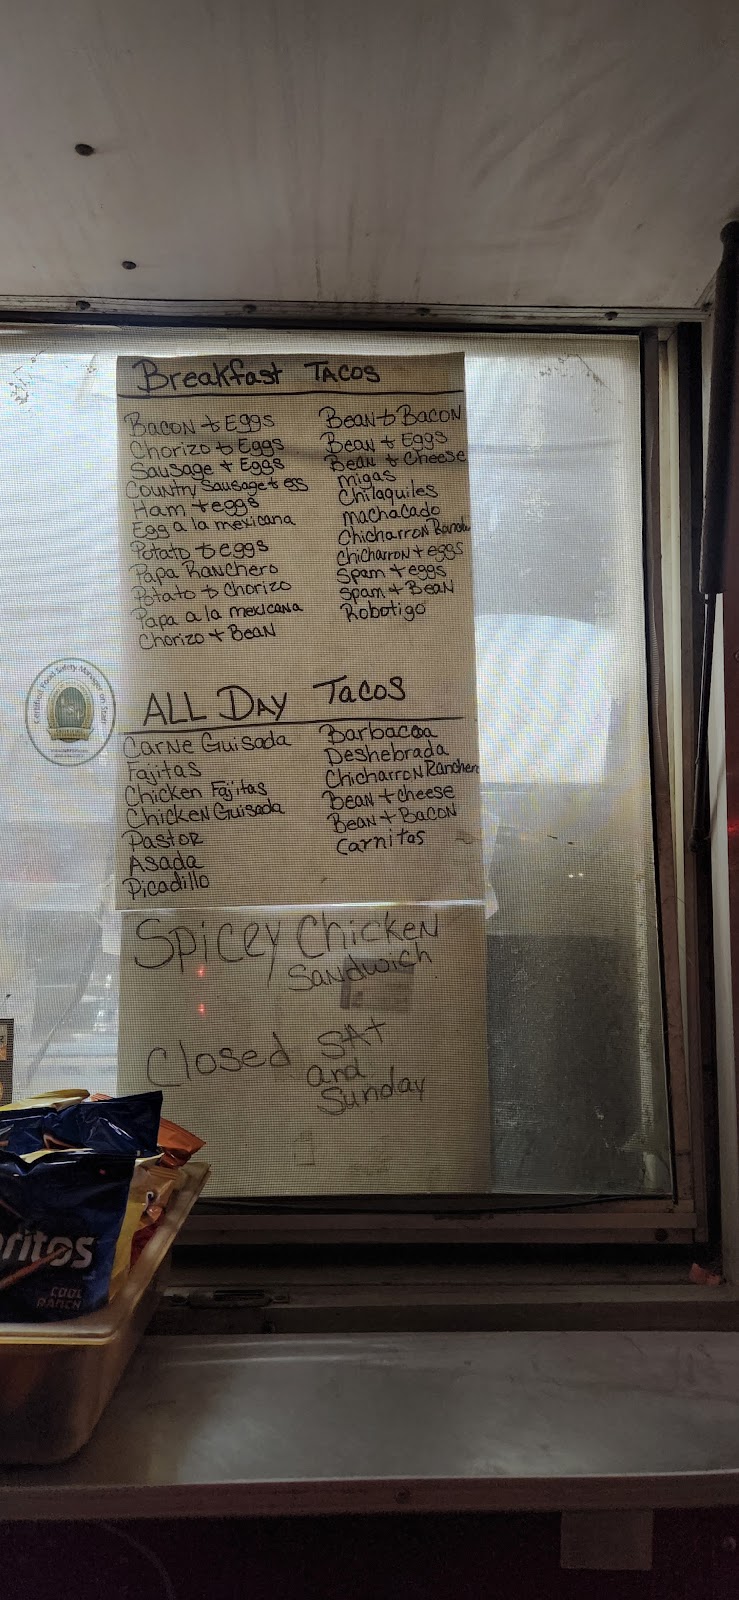 Breakfast TACOS
BACON & EGGS
CHORIZO & EGGS
SAUSAGE + EGGS
COUNTRY SAUSAGE & EGS
HAM + eggs
Egg a la mexicana
Potato & eggs
Papa Ranchero
Potato & Chorizo
Papa a la mexicana
Chorizo + Bean
BEAN & BACON
BEAN & EGGS
BEAN & Cheese
migas
Chilaquiles
machacado
ChicharroN
ChicharroN + eggs
Spam + eggs
Spam + BeaN
Robotigo
ALL DAY TACOS
CARNE GUISADA
Fajitas
Chicken Fajitas
Chicken Guisada
PASTOR
ASADA
Picadillo
Barbacoa
Deshebrada
ChicharroN Rancher
Bean + cheese
Bean + Bacon
Carnitas
Spicey Chicken
Sandwich
Closed SAt
and
Sunday
Certified Food Safety Manager on
ritos
COOL
RANCH